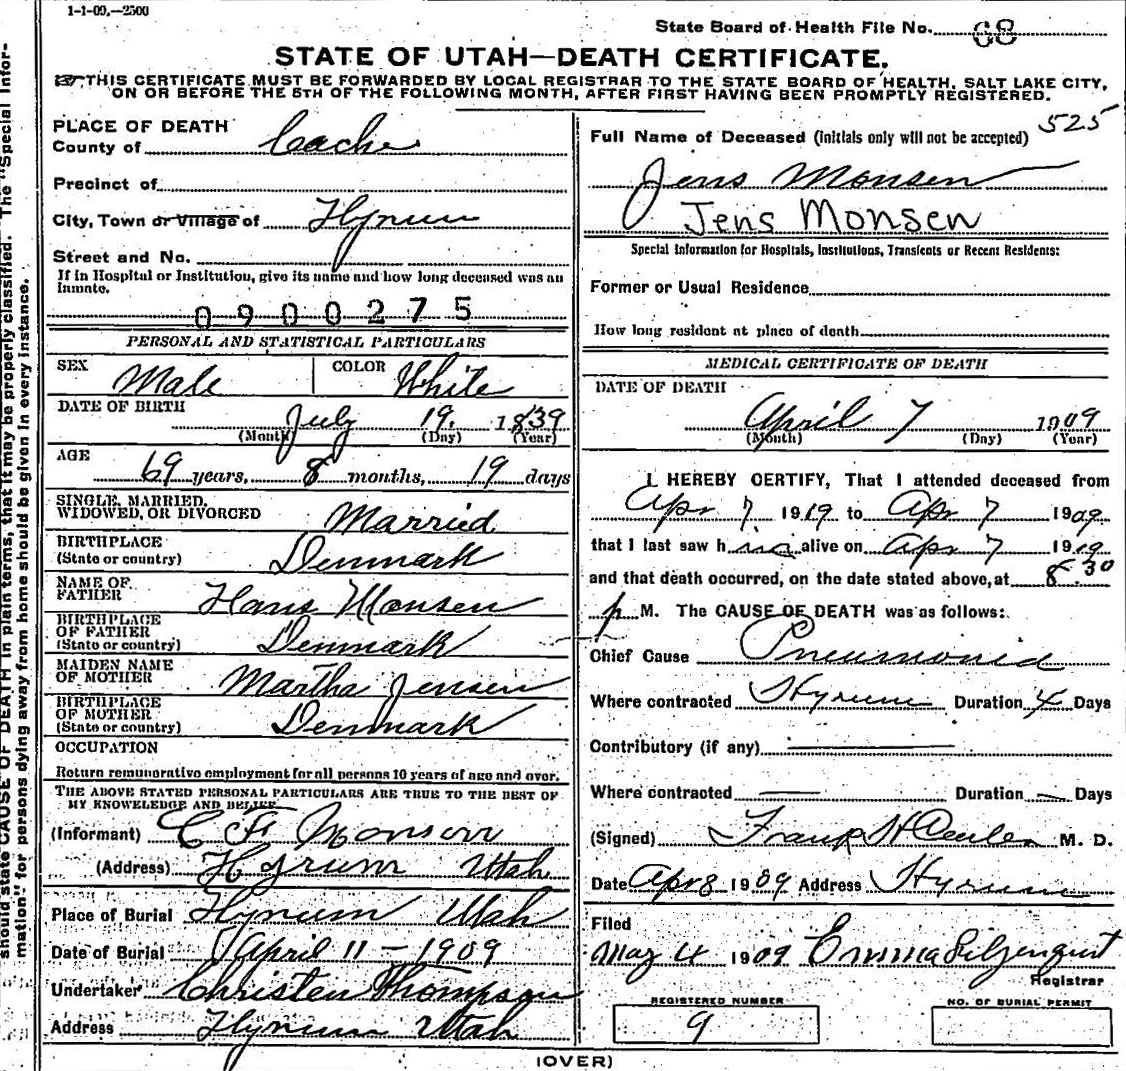 1-1-09.—2500
State Board of Health File No. 68
STATE OF UTAH—DEATH CERTIFICATE.
☞THIS CERTIFICATE MUST BE FORWARDED BY LOCAL REGISTRAR TO THE STATE BOARD OF HEALTH, SALT LAKE CITY,
ON OR BEFORE THE 5TH OF THE FOLLOWING MONTH, AFTER FIRST HAVING BEEN PROMPTLY REGISTERED.
should state CAUSE OF DEATH in plain terms, that it may be properly classified. The "Special Infor-
mation" for persons dying away from home should be given in every instance.
PLACE OF DEATH
County of Cache
Precinct of
City, Town or Village of Hyrum
Street and No.
If in Hospital or Institution, give its name and how long deceased was an
inmate.
0900275
PERSONAL AND STATISTICAL PARTICULARS
SEX Male COLOR White
DATE OF BIRTH July 19. 1839
(Month) (Day) (Year)
AGE 69 years, 8 months, 19 days
SINGLE, MARRIED,
WIDOWED, OR DIVORCED Married
BIRTHPLACE
(State or country) Denmark
NAME OF
FATHER Hans Monsen
BIRTHPLACE
OF FATHER
(State or country) Denmark
MAIDEN NAME
OF MOTHER Martha Jensen
BIRTHPLACE
OF MOTHER
(State or country) Denmark
OCCUPATION
Return remunerative employment for all persons 10 years of age and over.
THE ABOVE STATED PERSONAL PARTICULARS ARE TRUE TO THE BEST OF
MY KNOWLEDGE AND BELIEF
(Informant) C F Monson
(Address) Hyrum Utah
Place of Burial Hyrum Utah
Date of Burial April 11 - 1909
Undertaker Christen Thompson
Address Hyrum Utah
525
Full Name of Deceased (initials only will not be accepted)
Jens Monsen
Jens Monsen
Special Information for Hospitals, Institutions, Transients or Recent Residents:
Former or Usual Residence
How long resident at place of death
MEDICAL CERTIFICATE OF DEATH
DATE OF DEATH
April 7 1909
(Month) (Day) (Year)
I HEREBY CERTIFY, That I attended deceased from
Apr 7, 1909 to Apr 7 1909
that I last saw h im alive on Apr 7 1909
and that death occurred, on the date stated above, at 8.30
p M. The CAUSE OF DEATH was as follows:
Chief Cause Pneumonia
Where contracted Hyrum Duration 4 Days
Contributory (if any)
Where contracted — Duration — Days
(Signed) Frank H M. D.
Date Apr 8 1909 Address Hyrum
Filed
May 4 1909 Emma Liljenquist
Registrar
REGISTERED NUMBER
9
NO. OF BURIAL PERMIT
(OVER)